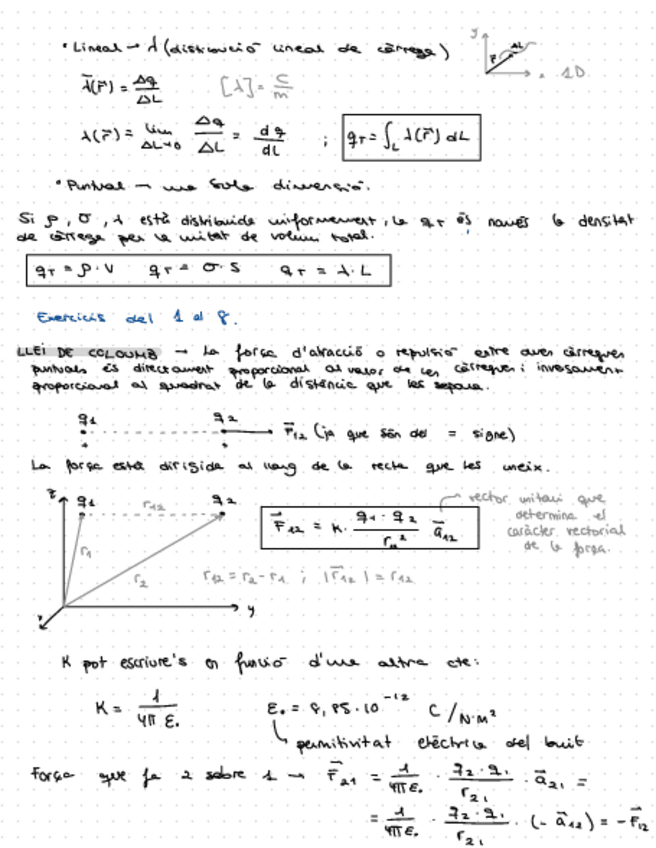 • Lineal → λ (distribució lineal de càrrega)
z
ΔL
r
x 1D
λ̄(r⃗) = Δq / ΔL [λ] = C / m
λ(r⃗) = lim ΔL→0 Δq / ΔL = dq / dL ; qT = ∫L λ(r⃗) dL
• Puntual → una sola dimensió.
Si ρ, σ, λ està distribuida uniformement, la qT és només la densitat
de càrrega per la unitat de volum total.
qT = ρ · V qT = σ · S qT = λ · L
Exercicis del 1 al 8.
LLEI DE COLOUMB → La força d'atracció o repulsió entre dues càrregues
puntuals és directament proporcional al valor de les càrregues i inversament
proporcional al quadrat de la distància que les separa.
q1 q2
F⃗12 (ja que són del = signe)
+ +
La força està dirigida al llarg de la recta que les uneix.
z q1 r12 q2
r1 r2
x y
F⃗12 = K · q1 · q2 / r12² a⃗12
vector unitari que
determina el
caràcter vectorial
de la força.
r12 = r2 - r1 ; |r⃗12| = r12
K pot escriure's en funció d'una altra cte:
K = 1 / 4π ε₀ ε₀ = 8,85 · 10⁻¹² C / N·m²
permitivitat elèctrica del buit
Força que fa 2 sobre 1 → F⃗21 = 1 / 4πε₀ · q2 · q1 / r21 · a⃗21 =
= 1 / 4πε₀ · q2 · q1 / r21 · (- a⃗12) = - F⃗12